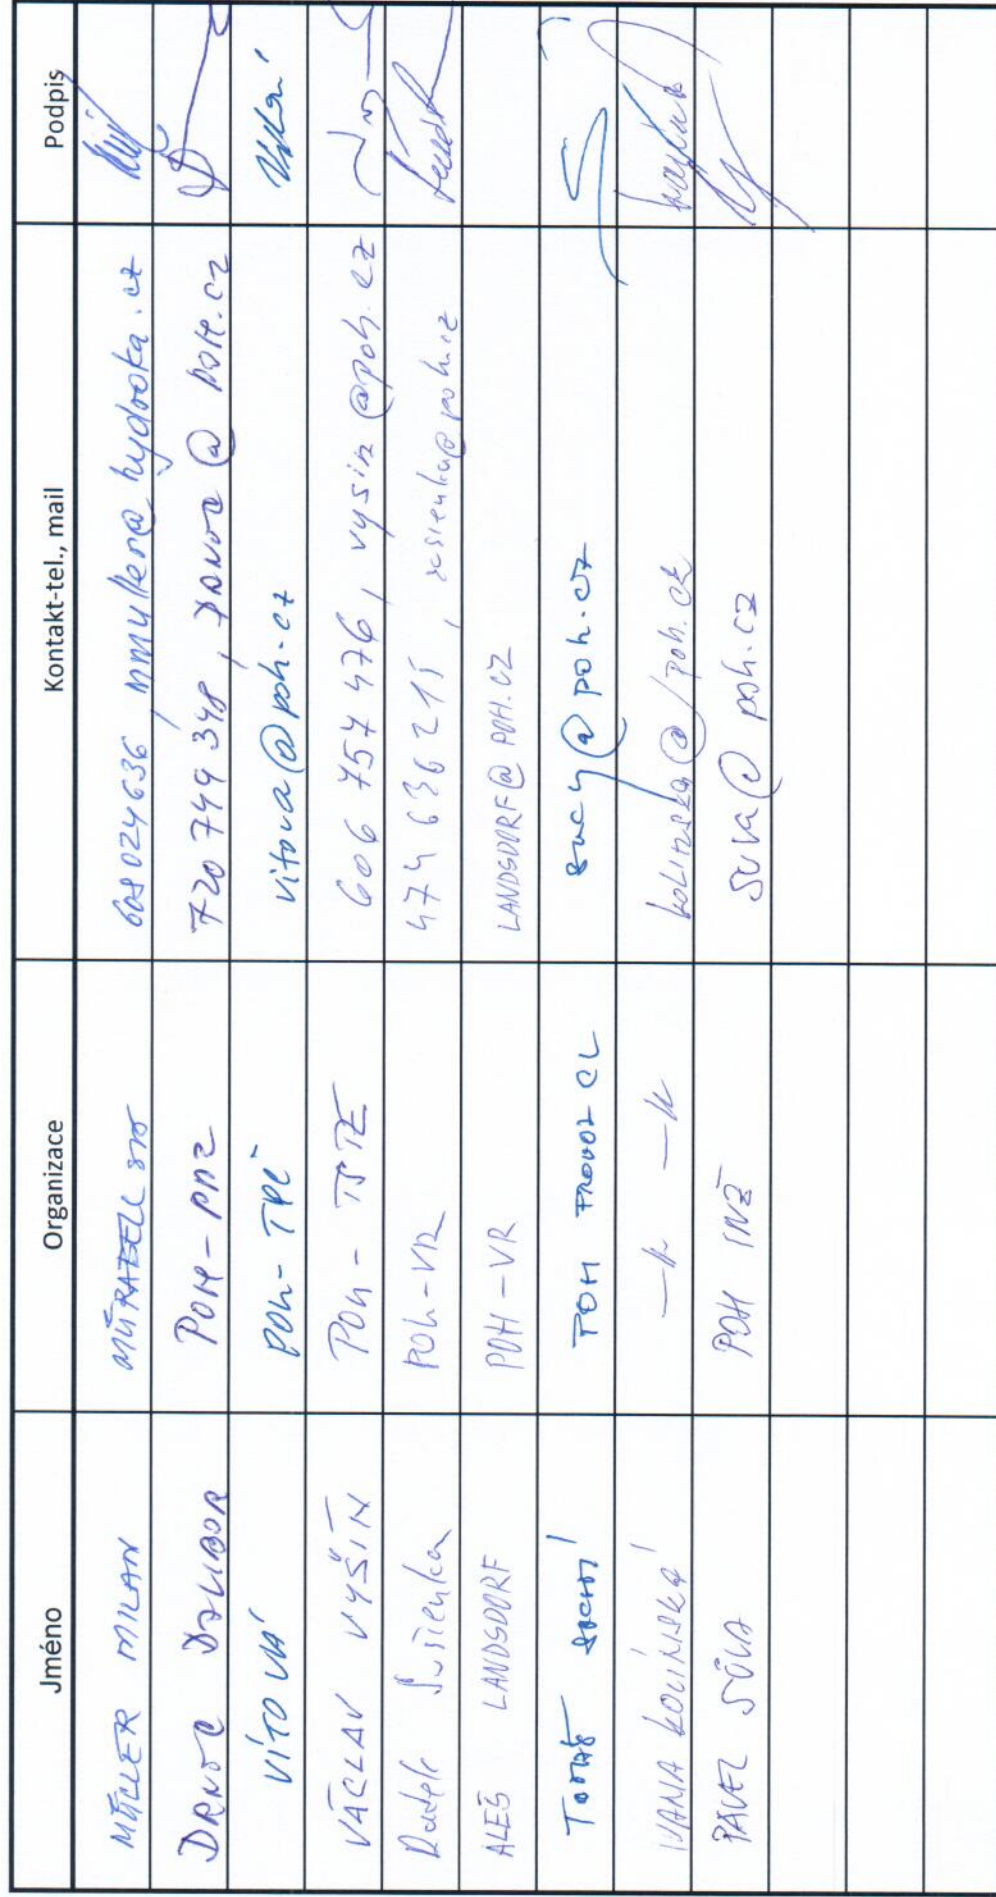 Jméno Organizace Kontakt-tel., mail Podpis
MÜLLER MILAN 608 024 636, mmuller@hydroka.cz
DRNOC DALIBOR POH-PDZ 720 749 348, DRNOC @ POH.CZ
VÍTOVÁ POh-TPČ vitova@poh.cz
VÁCLAV VYŠÍN POh - 606 757 476, vysin@poh.cz
Sušienka POh-VR 474 636 215, susienka@poh.cz
ALEŠ LANDSDORF POH-VR LANDSDORF@POH.CZ
TOMÁŠ SUCHÝ POH PROVOZ CL sucy@poh.cz
IVANA KOLÍNSKÁ —"— —"— kolinska@poh.cz
PAVEL SŮVA POH INŽ suva@poh.cz